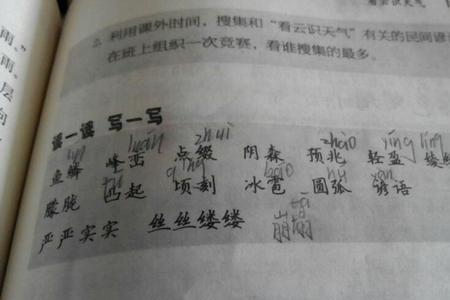 看云识天气
雨、”
雨、
层
2. 利用课外时间，搜集和“看云识天气”有关的民间谚
在班上组织一次竞赛，看谁搜集的最多。
读一读 写一写
lín luán zhuì zhào yíng líng
鱼鳞 峰峦 点缀 阴森 预兆 轻盈 绫
tū qǐng báo hú yàn
朦胧 凸起 顷刻 冰雹 圆弧 谚语
tā
严严实实 丝丝缕缕 崩塌